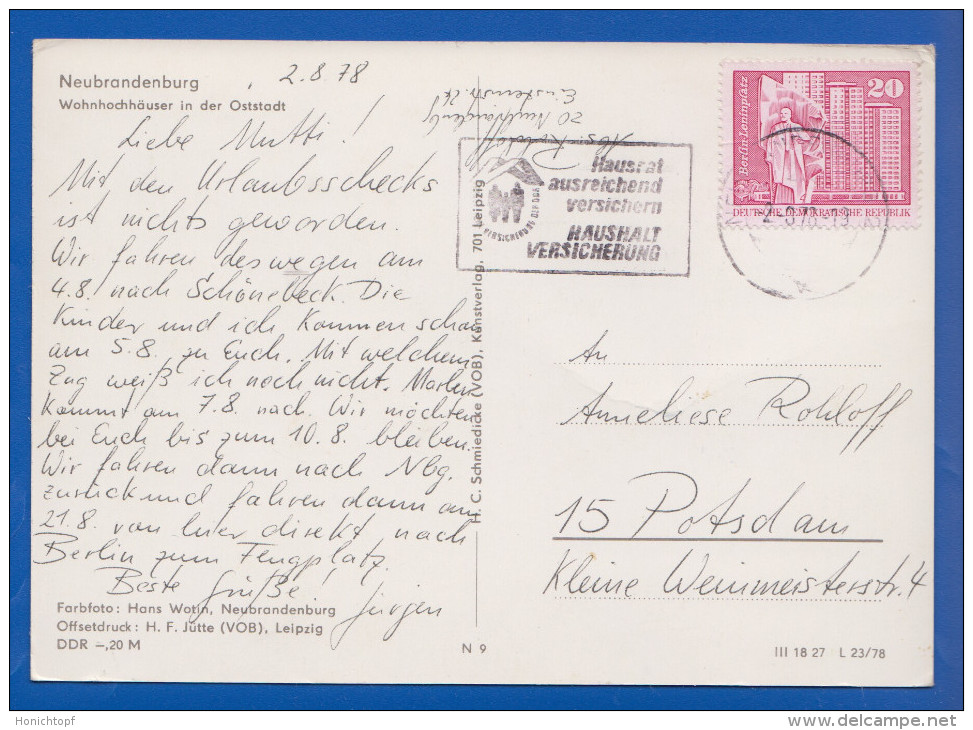 Neubrandenburg
Wohnhochhäuser in der Oststadt
2.8 78
Liebe Mutti!
Mit den Urlaubsschecks
ist nichts geworden.
Wir fahren deswegen am
4.8. nach Schönebeck. Die
Kinder und ich kommen schon
am 5.8. zu Euch. Mit welchem
Zug weiß ich noch nicht.
kommt am 7.8. nach. Wir möchten
bei Euch bis zum 10.8. bleiben.
Wir fahren dann nach Nbg.
zurück und fahren dann am
21.8. von hier direkt nach
Berlin zum
Beste Grüße! Jürgen
Farbfoto: Hans Wotin, Neubrandenburg
Offsetdruck: H. F. Jütte (VOB), Leipzig
DDR –,20 M
N 9
H. C. Schmiedicke (VOB), Kunstverlag, 701 Leipzig
Abs. Rohloff
20 Neubrandenbg
Einsteinstr. 24
Hausrat
ausreichend
versichern
HAUSHALT
VERSICHERUNG
VERSICHERUNG DER DDR
20
Berlin-Leninplatz
DEUTSCHE DEMOKRATISCHE REPUBLIK
An
Anneliese Rohloff
15 Potsdam
Kleine Weinmeisterstr. 4
III 18 27 L 23/78
Honichtopf
delcampe.net